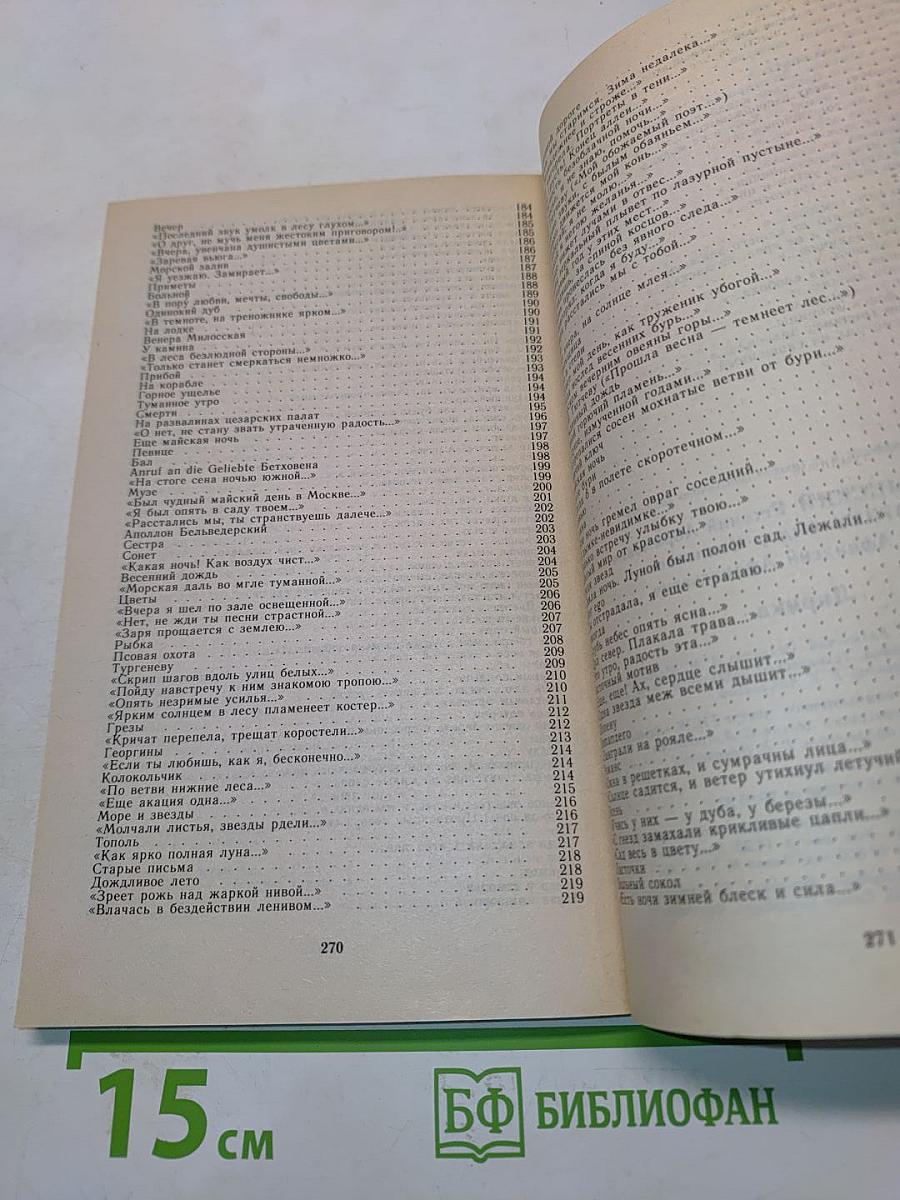 Вечер . . . 184
«Последний звук умолк в лесу глухом...» . . . 184
«О друг, не мучь меня жестоким приговором!..» . . . 185
«Вчера, увенчана душистыми цветами...» . . . 185
«Заревая вьюга...» . . . 186
Морской залив . . . 186
«Я уезжаю. Замирает...» . . . 187
Приметы . . . 187
Больной . . . 188
«В пору любви, мечты, свободы...» . . . 188
Одинокий дуб . . . 189
«В темноте, на треножнике ярком...» . . . 190
На лодке . . . 190
Венера Милосская . . . 191
У камина . . . 191
«В леса безлюдной стороны...» . . . 192
«Только станет смеркаться немножко...» . . . 192
Прибой . . . 193
На корабле . . . 193
Горное ущелье . . . 194
Туманное утро . . . 194
Смерти . . . 194
На развалинах цезарских палат . . . 195
«О нет, не стану звать утраченную радость...» . . . 196
Еще майская ночь . . . 197
Певице . . . 197
Бал . . . 198
Anruf an die Geliebte Бетховена . . . 198
«На стоге сена ночью южной...» . . . 199
Музе . . . 199
«Был чудный майский день в Москве...» . . . 200
«Я был опять в саду твоем...» . . . 201
«Расстались мы, ты странствуешь далече...» . . . 202
Аполлон Бельведерский . . . 202
Сестра . . . 203
Сонет . . . 203
«Какая ночь! Как воздух чист...» . . . 204
Весенний дождь . . . 204
«Морская даль во мгле туманной...» . . . 205
Цветы . . . 205
«Вчера я шел по зале освещенной...» . . . 206
«Нет, не жди ты песни страстной...» . . . 206
«Заря прощается с землею...» . . . 207
Рыбка . . . 207
Псовая охота . . . 208
Тургеневу . . . 209
«Скрип шагов вдоль улиц белых...» . . . 209
«Пойду навстречу к ним знакомою тропою...» . . . 210
«Опять незримые усилья...» . . . 210
«Ярким солнцем в лесу пламенеет костер...» . . . 211
Грезы . . . 212
«Кричат перепела, трещат коростели...» . . . 212
Георгины . . . 213
«Если ты любишь, как я, бесконечно...» . . . 214
Колокольчик . . . 214
«По ветви нижние леса...» . . . 214
«Еще акация одна...» . . . 215
Море и звезды . . . 216
«Молчали листья, звезды рдели...» . . . 216
Тополь . . . 217
«Как ярко полная луна...» . . . 217
Старые письма . . . 218
Дождливое лето . . . 218
«Зреет рожь над жаркой нивой...» . . . 219
«Влачась в бездействии ленивом...» . . . 219
270
дороге
старимся. Зима недалека...»
и строже...»
Портреты в тени...»
Конец аллеи...»
безоблачной ночи...»
не знаю, помочь...»
(«Мой обожаемый поэт...»)
с былым обаяньем...»
мой конь...»
не молю...»
желанья...»
лучами в отвес...»
плывет по лазурной пустыне...»
год у этих мест...»
за спиной косцов...»
без явного следа...»
когда я буду...»
расстались мы с тобой...»
на солнце млея...»
мой день, как труженик убогой...»
весенних бурь...»
вечерним овеяны горы...»
(«Прошла весна — темнеет лес...»)
дождь
горючий пламень...»
измученной годами...»
сосен мохнатые ветви от бури...»
ключ
ночь
бури
в полете скоротечном...»
ночь гремел овраг соседний...»
встречу улыбку твою...»
мир от красоты...»
звезд
ночь. Луной был полон сад. Лежали...»
ego
отстрадала, я еще страдаю...»
небес опять ясна...»
север. Плакала трава...»
утро, радость эта...»
мотив
еще! Ах, сердце слышит...»
звезда меж всеми дышит...»
на рояле...»
в решетках, и сумрачны лица...»
садится, и ветер утихнул летучий
у них — у дуба, у березы...»
замахали крикливые цапли...»
весь в цвету...»
Ласточки
сокол
ночи зимней блеск и сила...»
271
15 см
БФ БИБЛИОФАН